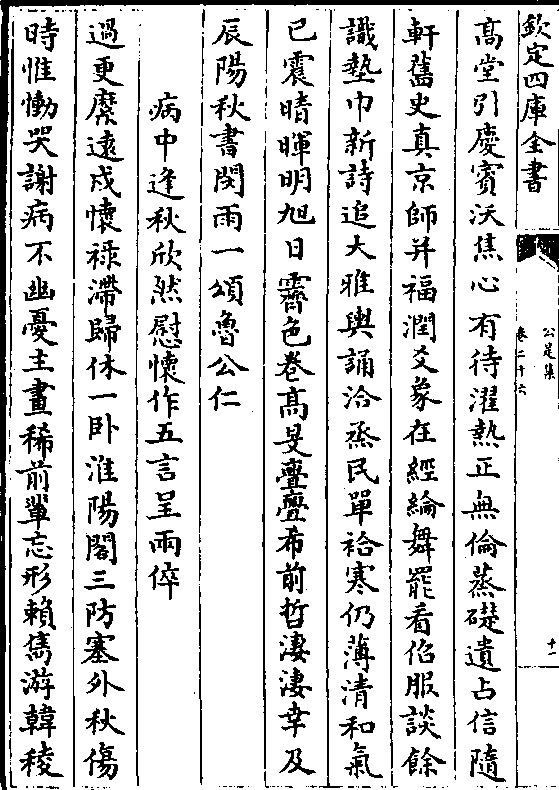 欽定四庫全書
公是集
卷二十六
十一
高堂引慶賓沃焦心有待濯熱正無倫蒸礎遺占信隨
軒舊史真京師并福潤爻象在經綸舞罷看伯服談餘
識墊巾新詩追大雅輿誦洽烝民單袷寒仍薄清和氣
已震晴暉明旭日霽色卷高旻亹亹希前哲淒淒幸及
辰陽秋書閔雨一頌魯公仁
病中逢秋欣然慰懷作五言呈兩倅
過更縻遠戍懷祿滯歸休一卧淮陽閣三防塞外秋傷
時惟慟哭謝病不幽憂主畫稀前軰忘形賴雋游韓稜